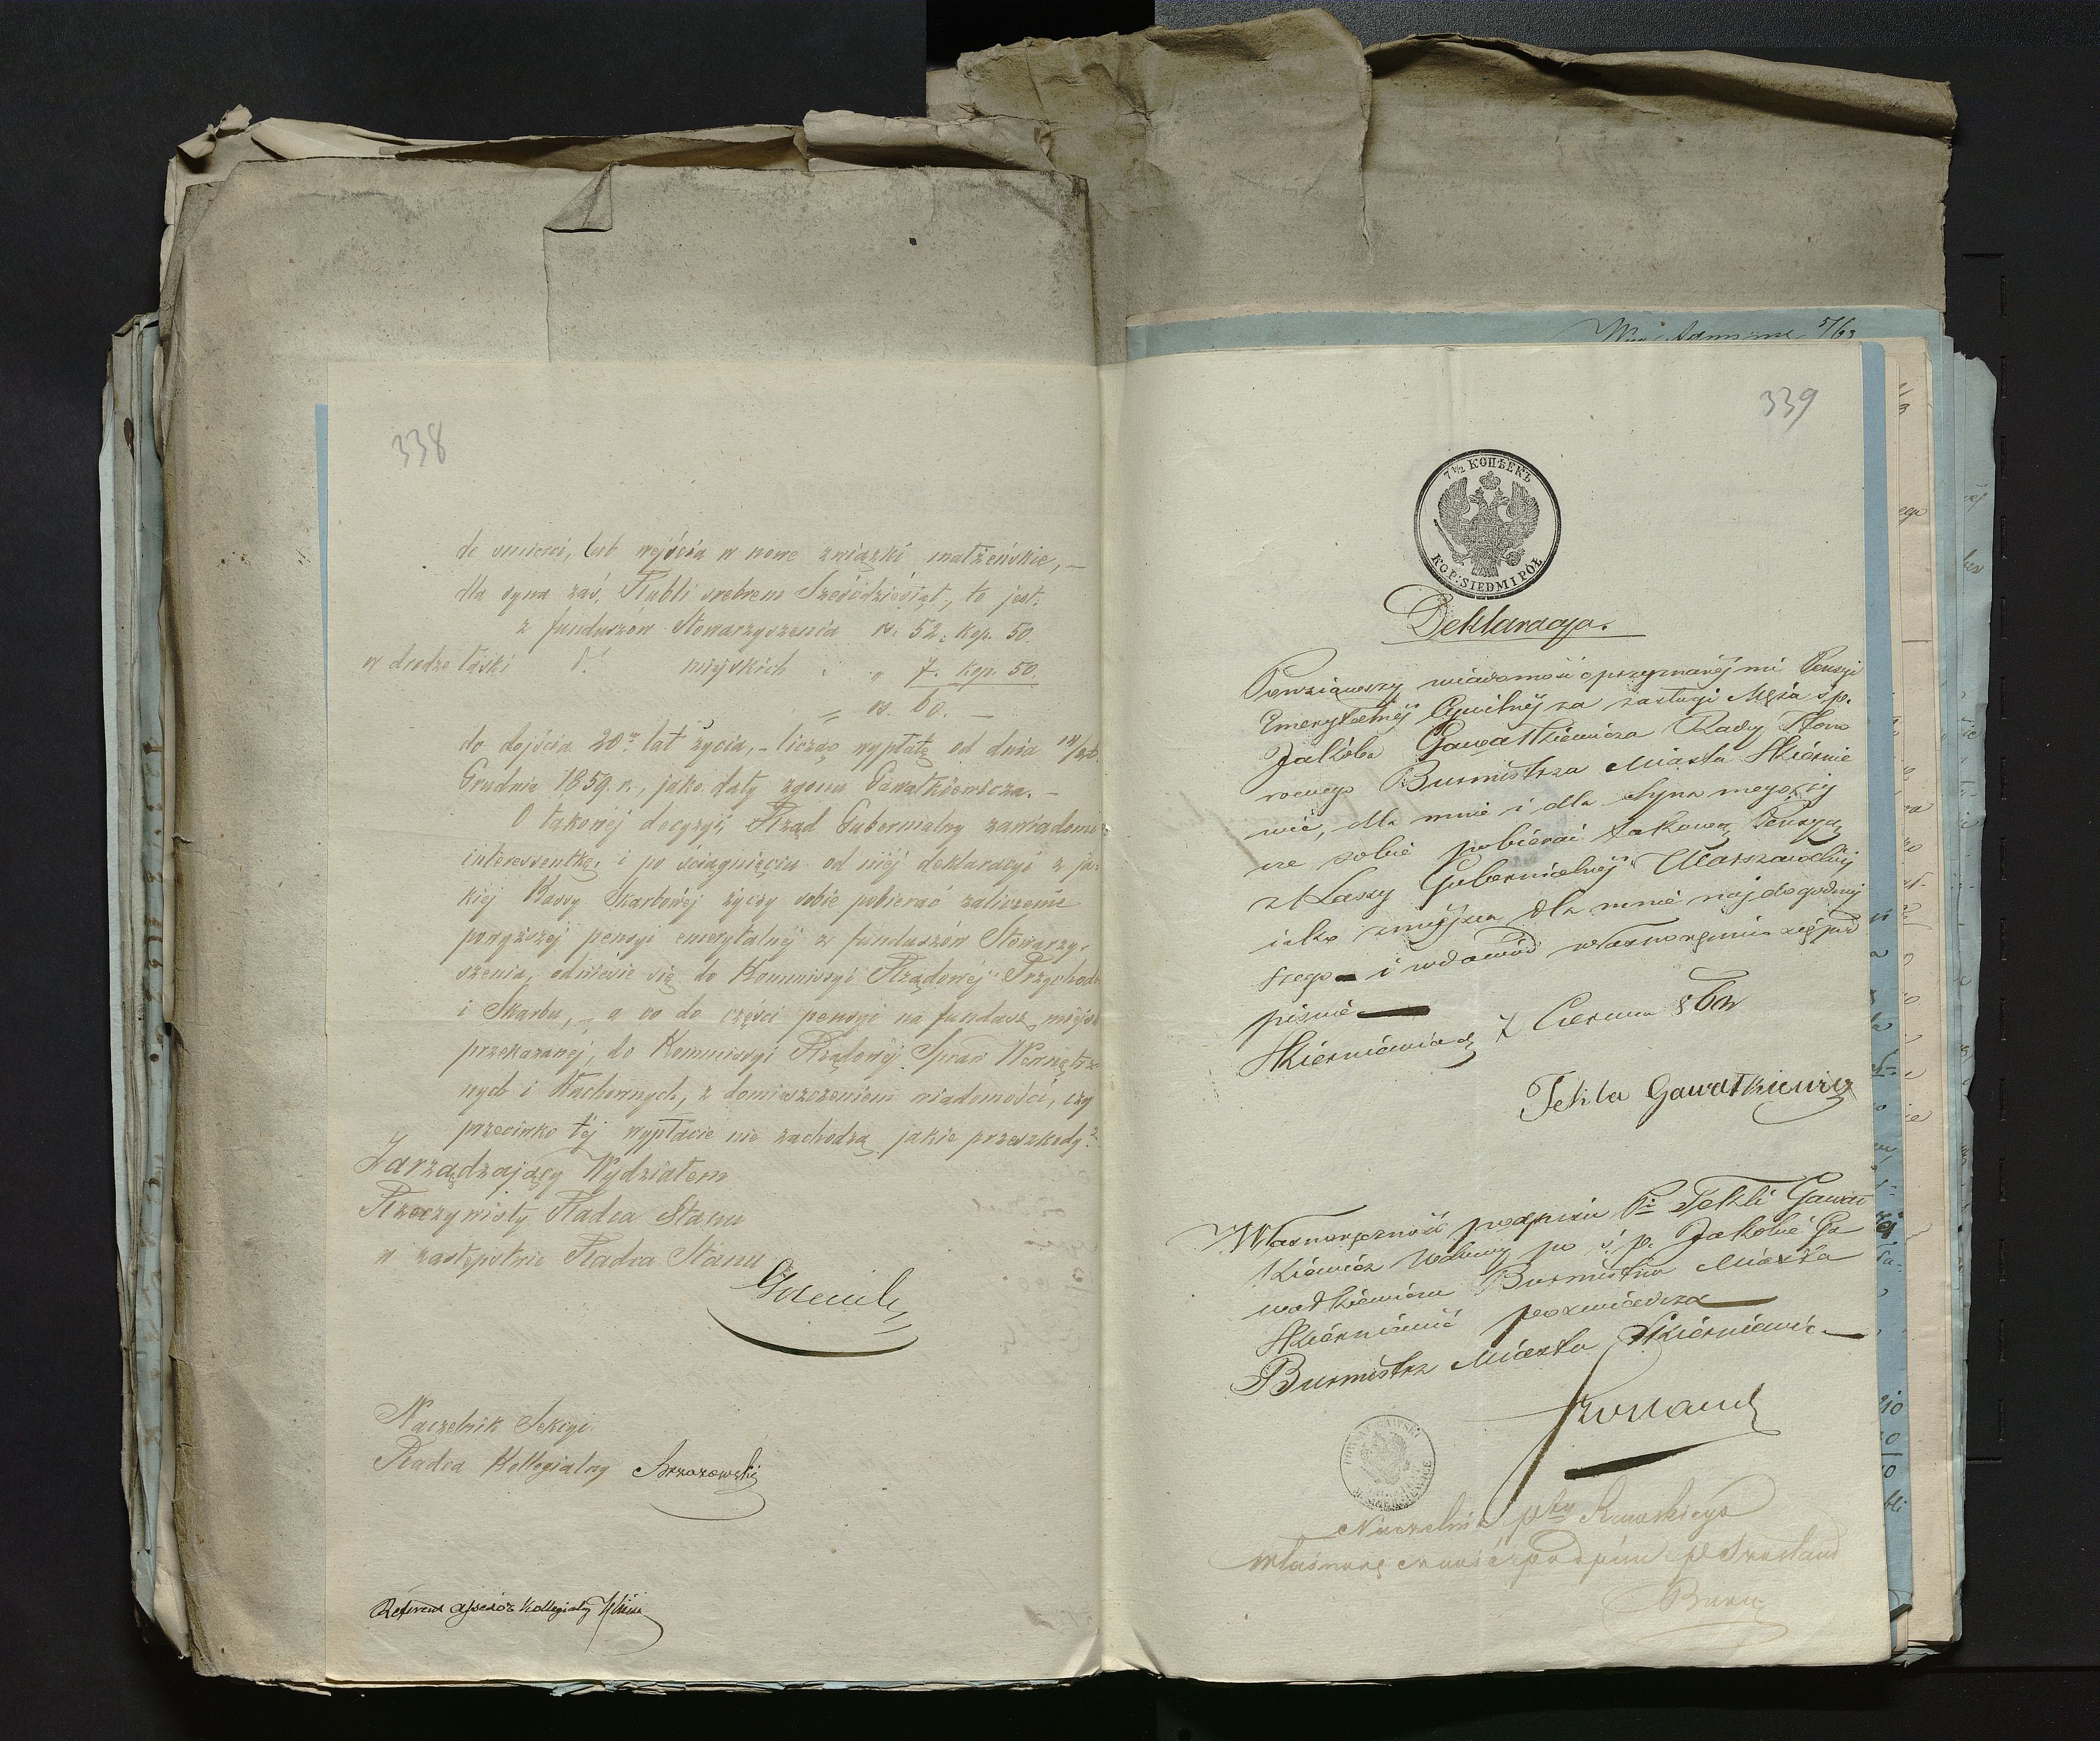 338
do śmierci, lub wejścia w nowe związki małżeńskie, —
dla syna zaś, Rubli srebrem Sześćdziesiąt, to jest:
z funduszów Stowarzyszenia rs. 52. kop. 50.
w drodze łaski d° miejskich „ 7. kop. 50.
= rs. 60. —
do dojścia 20u lat życia, – licząc wypłatę od dnia 14/26
Grudnia 1859. r., jako daty zgonu Gawatkiewicza. —
O takowéj decyzyi, Rząd Gubernialny zawiadomi
interessentkę, i po ściągnięciu od niéj deklaracyi z ja-
kiéj Kassy Skarbowéj życzy sobie pobierać zaliczenie
powyższéj pensyi emerytalnéj z funduszów Stowarzy-
szenia, odniesie się do Kommissyi Rządowéj Przychodów
i Skarbu, – a co do części pensyi na fundusz miejski
przekazanéj, do Kommissyi Rządowéj Spraw Wewnętrz-
nych i Duchownych, z domieszczeniem wiadomości, czy
przeciwko téj wypłacie nie zachodzą jakie przeszkody?
Zarządzający Wydziałem
Rzeczywisty Radca Stanu
w zastępstwie Radca Stanu
Naczelnik Sekcyi
Radca Kollegialny Brzozowski
Referent Assesor Kollegialny
Wyd. Admin. 5/63
339
7 1/2 КОПѢЕКЪ
KOP: SIEDM I PÓŁ
Deklaracya.
Powziąwszy wiadomość o przyznanéj mi Pensyi
Emerytalnéj Cywilnéj za zasługi Męża ś.p.
Jakóba Gawatkiewicza Rady Hono
rowego Burmistrza Miasta Skiernie
wic, dla mnie i dla Syna mego, ży
cze sobie pobierać takową Pensyą
z Kassy Gubernialnéj Warszawskiéj
jako miejsca dla mnie najdogodniej
szego — i na dowód własnoręcznie się pod
pisuię —
Skierniewice d. 7 Czerwca 860 r
Tekla Gawatkiewicz
Własnoręczność podpisu P. Tekli Gawat
kiewicz Wdowy po ś. p. Jakóbie Ga
watkiewiczu Burmistrzu Miasta
Skierniewic poświadcza —
Burmistrz Miasta Skierniewic —
Naczelnik Ptu Rawskiego
własnoręczność podpisu